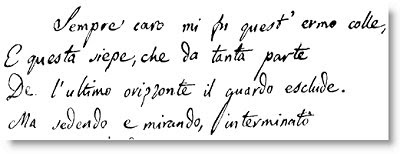 Sempre caro mi fu quest' ermo colle,
E questa siepe, che da tanta parte
De l'ultimo orizzonte il guardo esclude.
Ma sedendo e mirando, interminato